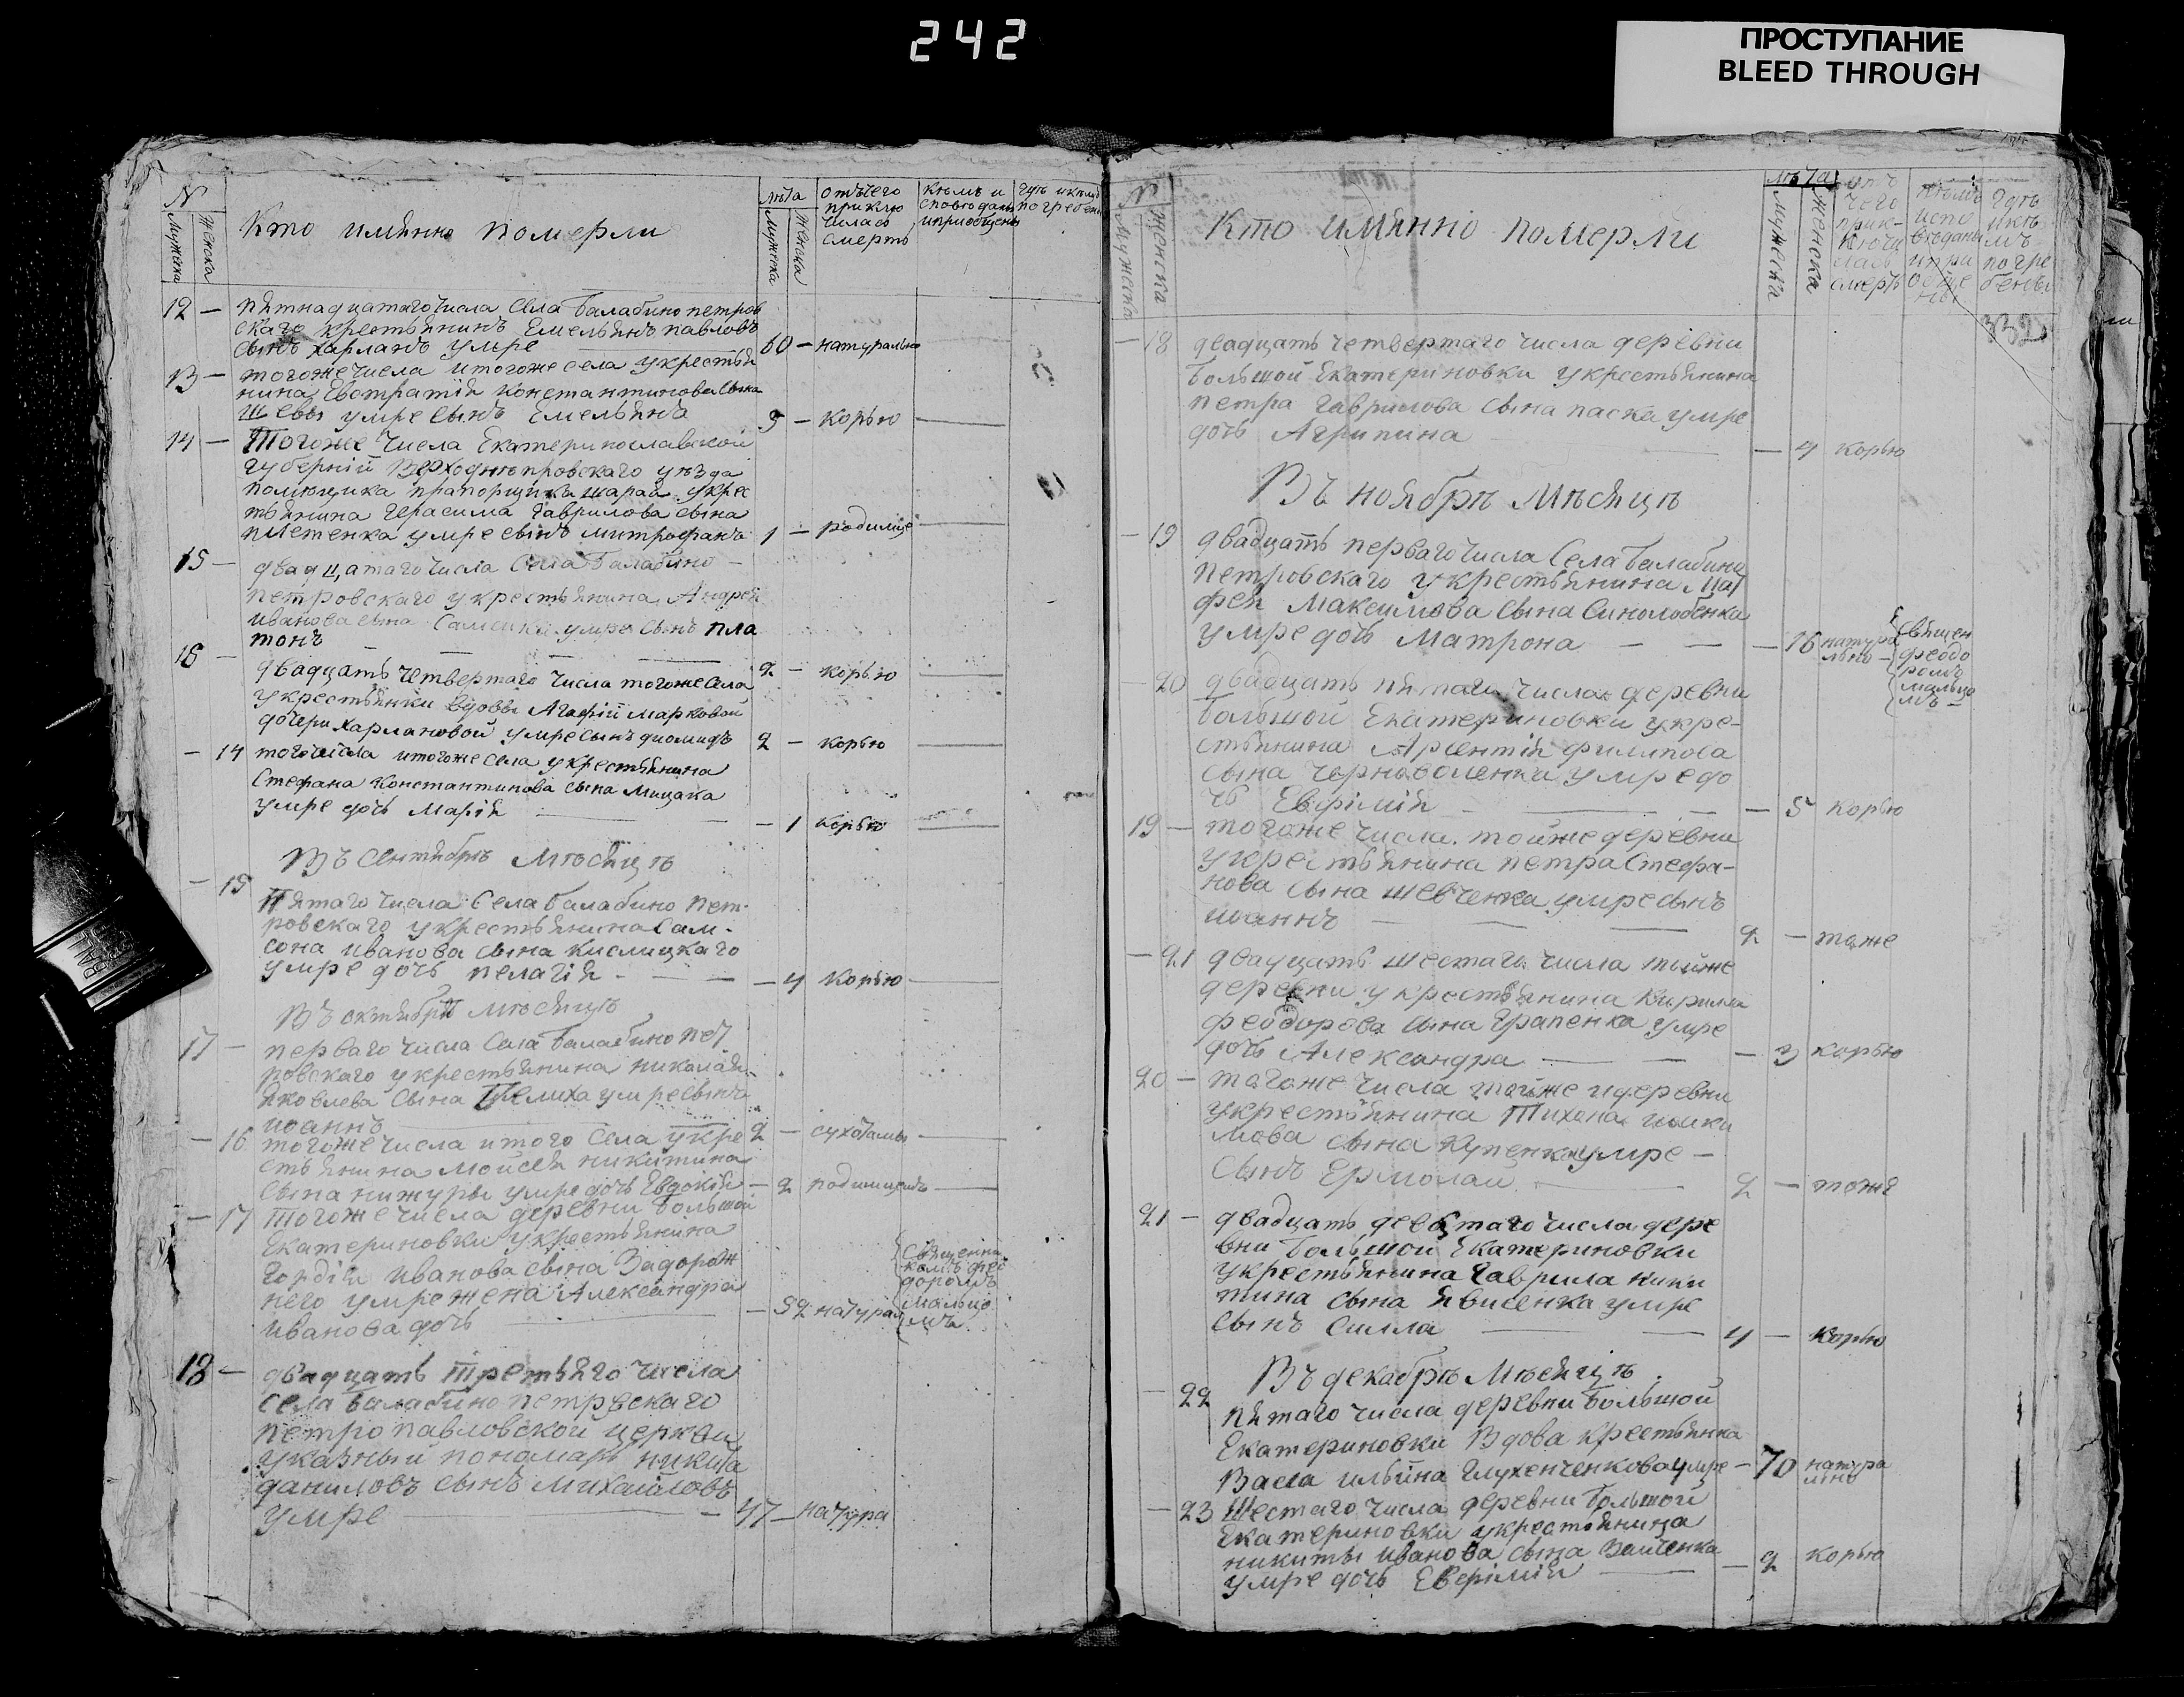 242
ПРОСТУПАНИЕ
BLEED THROUGH
№
Мужеска
Женска
Кто имянно померли
лѣта
Мужеска
Женска
отъ чего
приклю
чилась
смерть
Кѣмъ и
сповѣданы
и приобщены
гдѣ и кѣмъ
погребены
12 — пятнадцатаго числа Села Балабино петров
скаго крестьянинъ Емельянъ павловъ
сынъ харланъ умре 60 — натурально
13 — тогоже числа и тогоже села у крестья
нина Евстратія Константинова сына
шевы умре сынъ Емельянъ 5 — корью
14 — Тогоже числа Екатеринославской
губерніи Верходнепровскаго уѣзда
помѣщика прапорщика шарая у крес
тьянина Герасима Гаврилова сына
плетенка умре сынъ митрофанъ 1 — родимце
15 — двадцатаго числа Села Балабино
петровскаго у крестьянина Андрея
иванова сына умре сынъ пла
тонъ
2 — корью
16 — двадцать четвертаго числа тогоже села
у крестьянки вдовы Агафіи марковой
дочери харлановой умре сынъ диомидъ 2 — корью
— 14 того числа и тогоже села у крестьянина
Стефана Константинова сына Мицака
умре дочь Марія — 1 корью
Въ Сентябрѣ Мѣсяцѣ
— 15 Пятаго числа Села Балабино пет-
ровскаго у крестьянина Сам-
сона иванова сына кислицкаго
умре дочь пелагія — 4 корью
Въ октябрѣ мѣсяцѣ
17 — перваго числа Села Балабино пет
ровскаго у крестьянина николая
яковлева сына умре сынъ
иоаннъ 2 — сухотамы
— 16 тогоже числа и того Села у кре
стьянина мойсея никитина
сына нижуры умре дочь Евдокія — 2
— 17 Тогоже числа деревни большой
Екатериновки у крестьянина
Гордія иванова сына Задорож
него умре жена Александра
иванова дочь — 52 натура
Священни
комъ фео
доромъ
мальцо
мъ
18 — двадцать третьяго числа
Села Балабино петрвскаго
петропавловской церкви
указный пономарь никита
даниловъ сынъ михайловъ
умре — 47 — натура
№
Мужеска
Женска
Кто имянно померли
лѣта
Мужеска
женска
отъ
чего
прик-
лючи
лась
смерть
кѣмъ
испо
вѣданы
и при
обще
ны
гдѣ
и кѣ
мъ
погре
бены
332
— 18 двадцать четвертаго числа деревни
Большой Екатериновки у крестьянина
петра Гаврилова сына паска умре
дочь Агрипина — 4 корью
Въ ноябрѣ Мѣсяцѣ
— 19 двадцать перваго числа Села Балабина
петровскаго у крестьянина Мат
фея Максимова сына Синолобенка
умре дочь Матрона — 16 натура
льно
Священ
феодо
ромъ
мальцо
мъ
— 20 двадцать пятаго числа деревни
Большой Екатериновки у кре-
стьянина Арсентія филипова
сына черноволенка умре до
чь Евфимія — 5 корью
19 — тогоже числа тойже деревни
у крестьянина петра Стефа-
нова сына шевченка умре сынъ
иоаннъ 2 — тоже
— 21 двадцать шестаго числа тойже
деревни у крестьянина Кирила
феодорова сына Грапенка умре
дочь Александра — 3 корью
20 — тогоже числа тойже идеревни
у крестьянина Тихона иоаки
мова сына Купенка умре
Сынъ Ермолай 2 — тоже
21 — двадцать девятаго числа дере
вни Большой Екатериновки
у крестьянина Гаврила ники
тина сына явисенка умре
сынъ Силла 4 — Корью
Въ декабрѣ Мѣсяцѣ
— 22 пятаго числа деревни Большой
Екатериновки Вдова крестьянка
Васса ильина Глухенченкова умре — 70 натура
льно
— 23 Шестаго числа деревни Большой
Екатериновки у крестьянина
никиты иванова сына Заиченка
умре дочь Евфимія — 2 корью